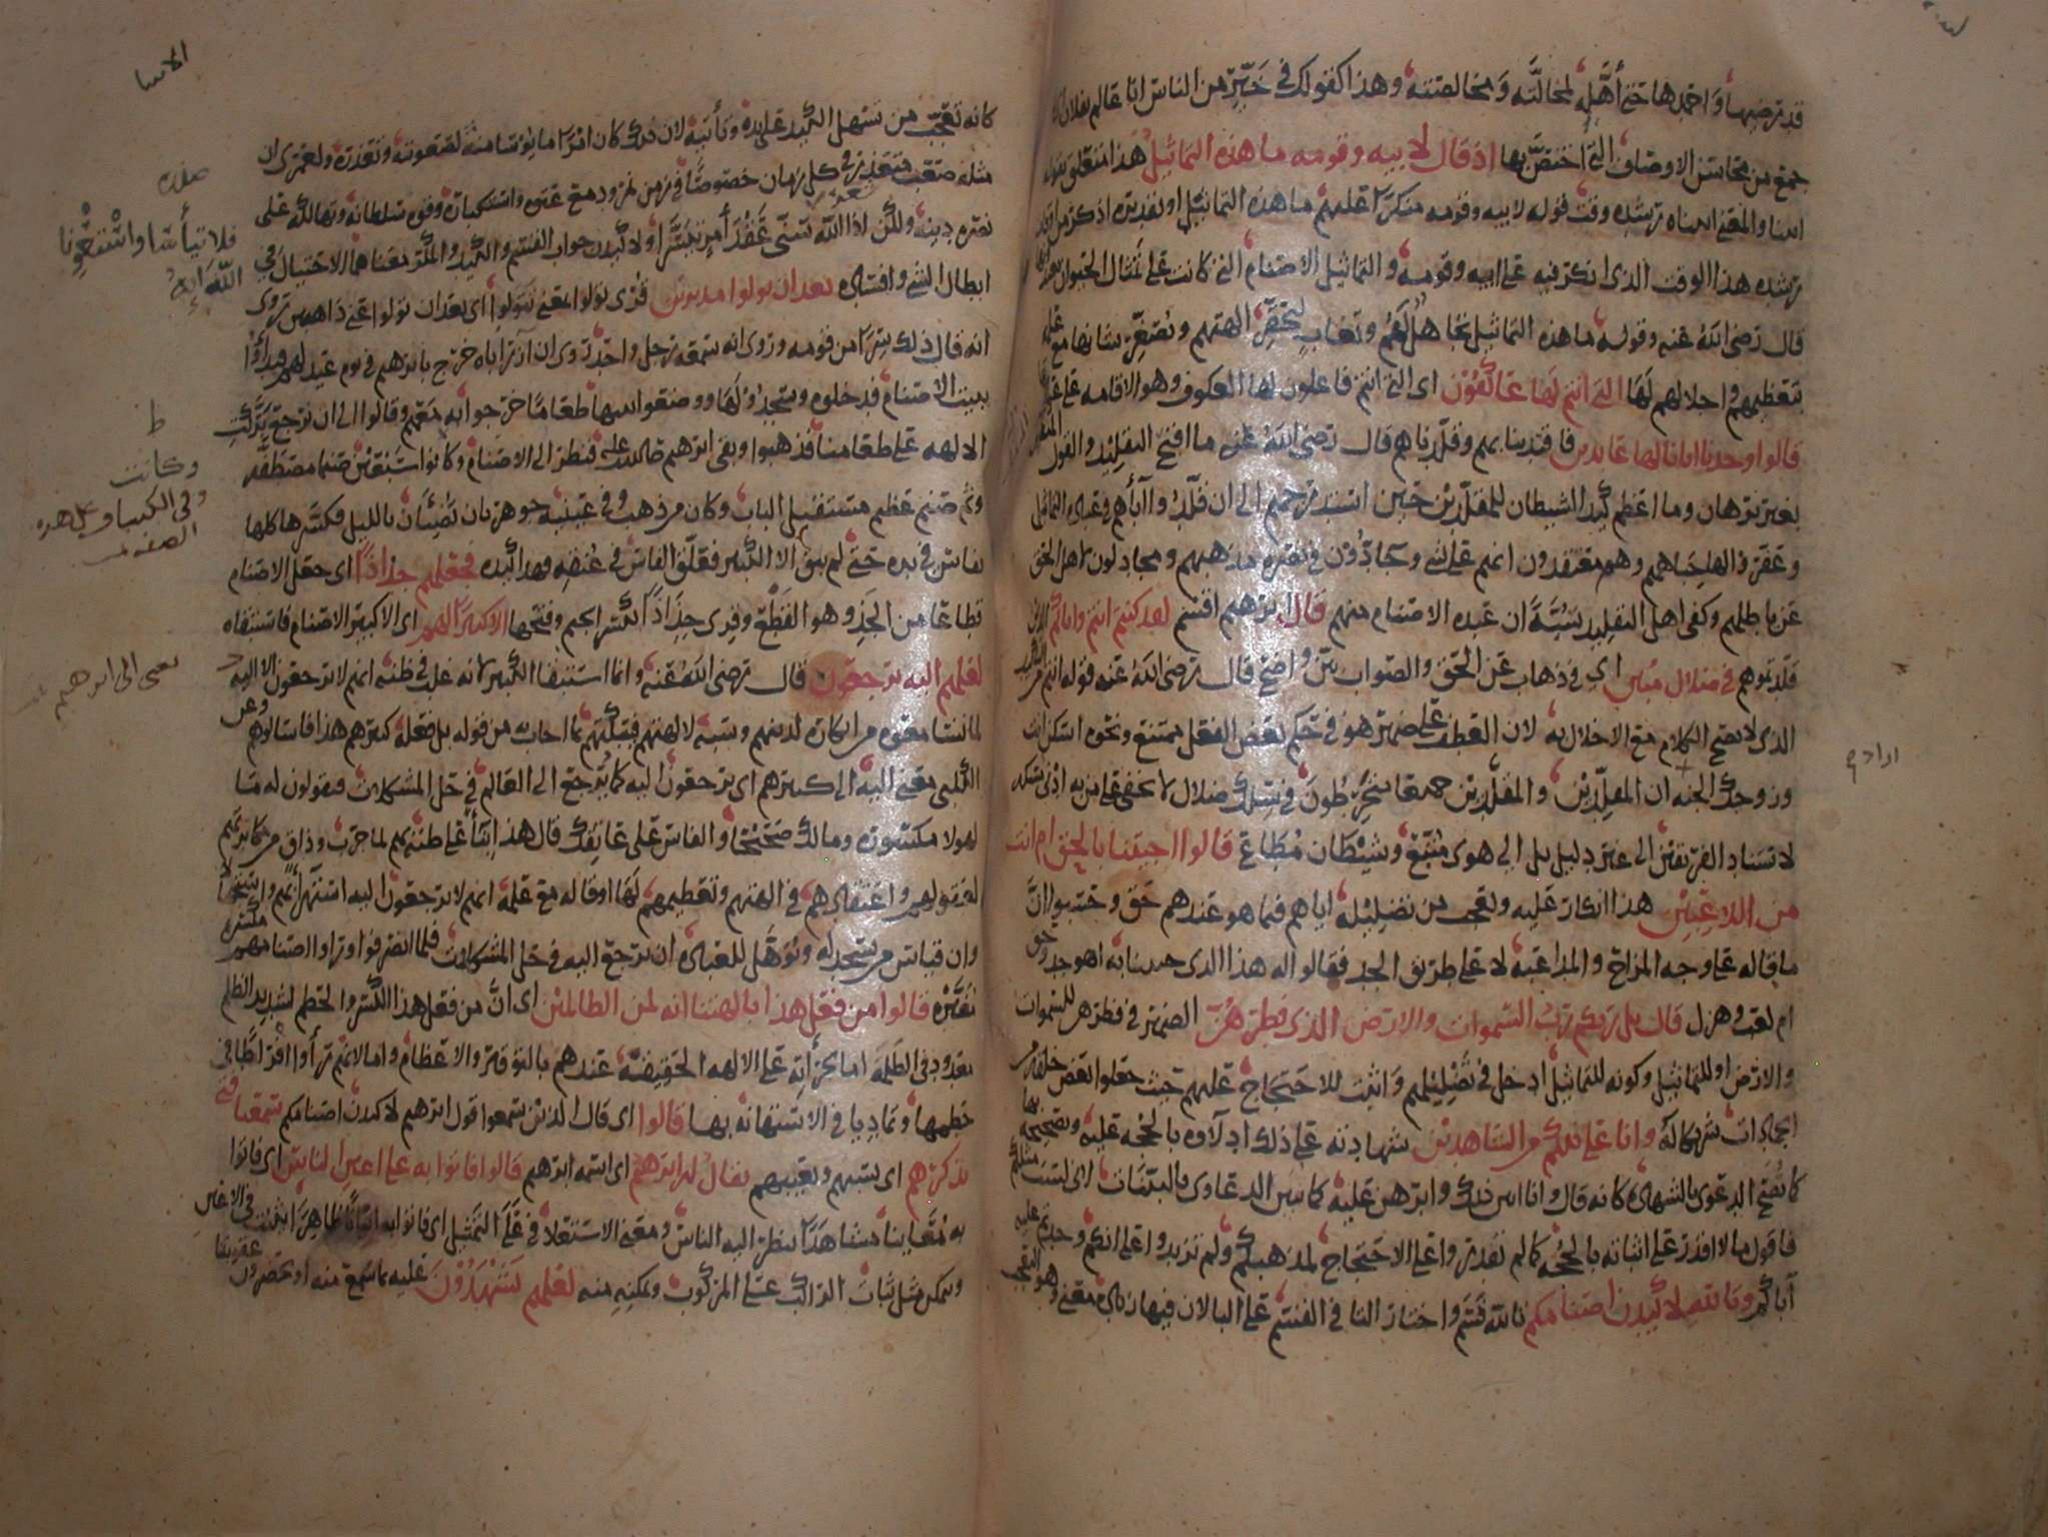 قد رضيها واحمدها حتى أهّله لمخالّته ومخالصته وهذا كقولك في خيّر من الناس انا عالم بفلان
جمع من محاسن الاوصاف التي اختص بها اذ قال لابيه وقومه ما هذه التماثيل هذا متعلق بقوله
اتينا والمعنى اتيناه رشده وقت قوله لابيه وقومه منكرا عليهم ما هذه التماثيل او تقديره اذكر من
رشده هذا الوقت الذي انكر فيه على ابيه وقومه والتماثيل الاصنام التي كانت على تمثال الحيوان
قال رضى الله عنه وقوله ما هذه التماثيل تجاهل لهم وتغاب ليحقّر الهتهم ويصغّر شانها مع علمه
بتعظيمهم واجلالهم لها التي انتم لها عاكفون اى التي انتم فاعلون لها العكوف وهو الاقامه على
قالوا وجدنا اباءنا لها عابدين فاقتدينا بهم وقلّدناهم قال رضى الله عنه ما اقبح التقليد والقول
بغير برهان وما اعظم كيد الشيطان للمقلّدين حين استدرجهم الى ان قلّدوا آباهم في عبادة التماثيل
وعفّروا لها جباههم وهم معتقدون انهم على شي وجادّون في نصره مذهبهم ومجادلون اهل الحق
عن باطلهم وكفى اهل التقليد سُبّة ان عبده الاصنام منهم قال ابرهيم اقسم لقد كنتم انتم واباؤكم
قلّدتموهم في ضلال مبين اي في ذهاب عن الحق والصواب بيّن واضح قال رضى الله عنه قوله انتم من
الذي لا يصح الكلام مع الاخلال به لان العطف على ضمير هو في حكم بعض الفعل ممتنع ونحوه اسكن انت
وزوجك الجنه ان المقلِّدين والمقلَّدين جميعا منخرطون في سلك ضلال لا يخفى على من به ادنى مسكه
لاستناد الفريقين الى غير دليل بل الى هوى متّبع وشيطان مطاع قالوا اجيتنا بالحق ام انت
من اللاعبين هذا انكار عليه وتعجب من تضليله اياهم فيما هو عندهم حق وحسبوا انّ
ما قاله على وجه المزاح والمداعبة لا على طريق الجد فقالوا له هذا الذى جيتنا به اهو جد وحق
ام لعب وهزل قال بل ربكم رب السموات والارض الذى فطرهن الضمير في فطرهن للسموات
والارض او للتماثيل وكونه للتماثيل ادخل في تضليلهم واثبت للاحتجاج عليهم حيث جعلوا بعض خلقه
شركاله وانا على ذلكم من الشاهدين شهادته على ذلك ادلاؤه بالحجه عليه وتصحيحه بها
كما تُصح الدعوى بالشهادة كانه قال وانا ابين ذلك وابرهن عليه كما تبين الدعاوى بالبينات لانى لست مثلكم
فاقول ما لا اقدر على اثباته بالحجه كما لم تقدروا على الاحتجاج لمذهبكم ولم تزيدوا على انكم وجدتم عليه
آباكم وتالله لاكيدن اصنامكم تالله قسم واختار التا في القسم على البا لان فيها زيادة معنى وهو التعجب
الانبيا
كانه تعجّب من تسهل الكيد على يده وتأتيه لان ذلك كان امرا مايوسا منه لصعوبته وتعذره ولعمرى ان
مثله صعب متعذر في كل زمان خصوصًا في زمن نمرود مع عتوه واستكباره وقوة سلطانه وتهالكه على
نصره دينه ولكن اذا الله سنّى عقد أمر تيسّرا ولاكيدن جواب القسم والكيد والمكر معناهما الاحتيال في
ابطال الشي وافساده بعد ان تولوا مدبرين قرى تولوا بمعنى تتولوا اى بعد ان تولوا عنى ذاهبين روى
انه قال ذلك سرّا من قومه وروى انه سمعه رجل واحد روى ان آزر اباه خرج بابرهيم في يوم عيد لهم فبدأوا
ببيت الاصنام فدخلوه وسجدوا لها ووضعوا بينها طعامًا خرجوا به معهم وقالوا الى ان نرجع برّكت
الالهه على طعامنا فذهبوا وبقى ابرهيم صلى الله عليه فنظر الى الاصنام وكانوا سبعين صنما مصطفّه
وثم صنم عظيم مستقبل الباب وكان من ذهب وفي عينيه جوهرتان تضيئان بالليل فكسّرها كلها
بفاس في يده حتى لم يبق الا الكبير فعلّق الفاس في عنقه وهذا كيده فجعلهم جذاذًا اى جعل الاصنام
قطاعا من الجذ وهو القطع وقرى جذاذًا بكسر الجيم وفتحها الا كبيرا لهم اى الا كبير الاصنام فاستبقاه
لعلهم اليه يرجعون قال رضى الله عنه وانما استبقا الكبير لانه غلب في ظنه انهم لا يرجعون الا اليه
لما تسامعوه من انكاره لدينهم وسبه لالهتهم فيبكّتهم بما اجاب به من قوله بل فعله كبيرهم هذا فاسالوهم وعن
الكلبى معنى اليه الى كبيرهم اى يرجعون اليه كما يُرجع الى العالم في حل المشكلات فيقولون له ما
لهولا مكسّوره ومالك صحيحًا والفاس على عاتقك قال هذا بنًا على ظنه بهم لما جرّب وذاق من مكابرتهم
لعقولهم واعتقادهم في الهتهم وتعظيمهم لها او قاله مع علمه انهم لا يرجعون اليه استهزأ بهم واستجهالا
وان قياس من يسجد له ويؤهّل للعبادة ان يرجع اليه في حل المشكلات فلما انصرفوا ورأوا اصنامهم مكسّرة
قالوا من فعل هذا بالهتنا انه لمن الظالمين اى انّ من فعل هذا الكسر والحطم لشديد الظلم
معدود في الظلمة اما لجرأته على الالهه الحقيقة عندهم بالتوقير والاعظام واما لانهم رأوا افراطًا في
حطمها وتماديا في الاستهانة بها قالوا اى قال الذين سمعوا قول ابرهيم لاكيدن اصنامكم سمعنا فتى
يذكرهم اى يسبهم ويعيبهم يقال له ابرهيم اى اسمه ابرهيم قالوا فاتوا به على اعين الناس اى فاتوا
به معاينا مشاهَدًا ينظر اليه الناس ومعنى الاستعلا في على التمثيل اى فاتوا به اتيانًا ظاهرًا يثبت في الاعين
ويتمكن مثل ثبات الراكب على المركوب وتمكنه منه لعلهم يشهدون عليه بما سمع منه او يحضرون عقوبتنا
فلا تيأسا واسْتَغْوِرا
الله
وكانت
وفي الكشاف على هذه
الصفة
يعنى الى ابرهيم